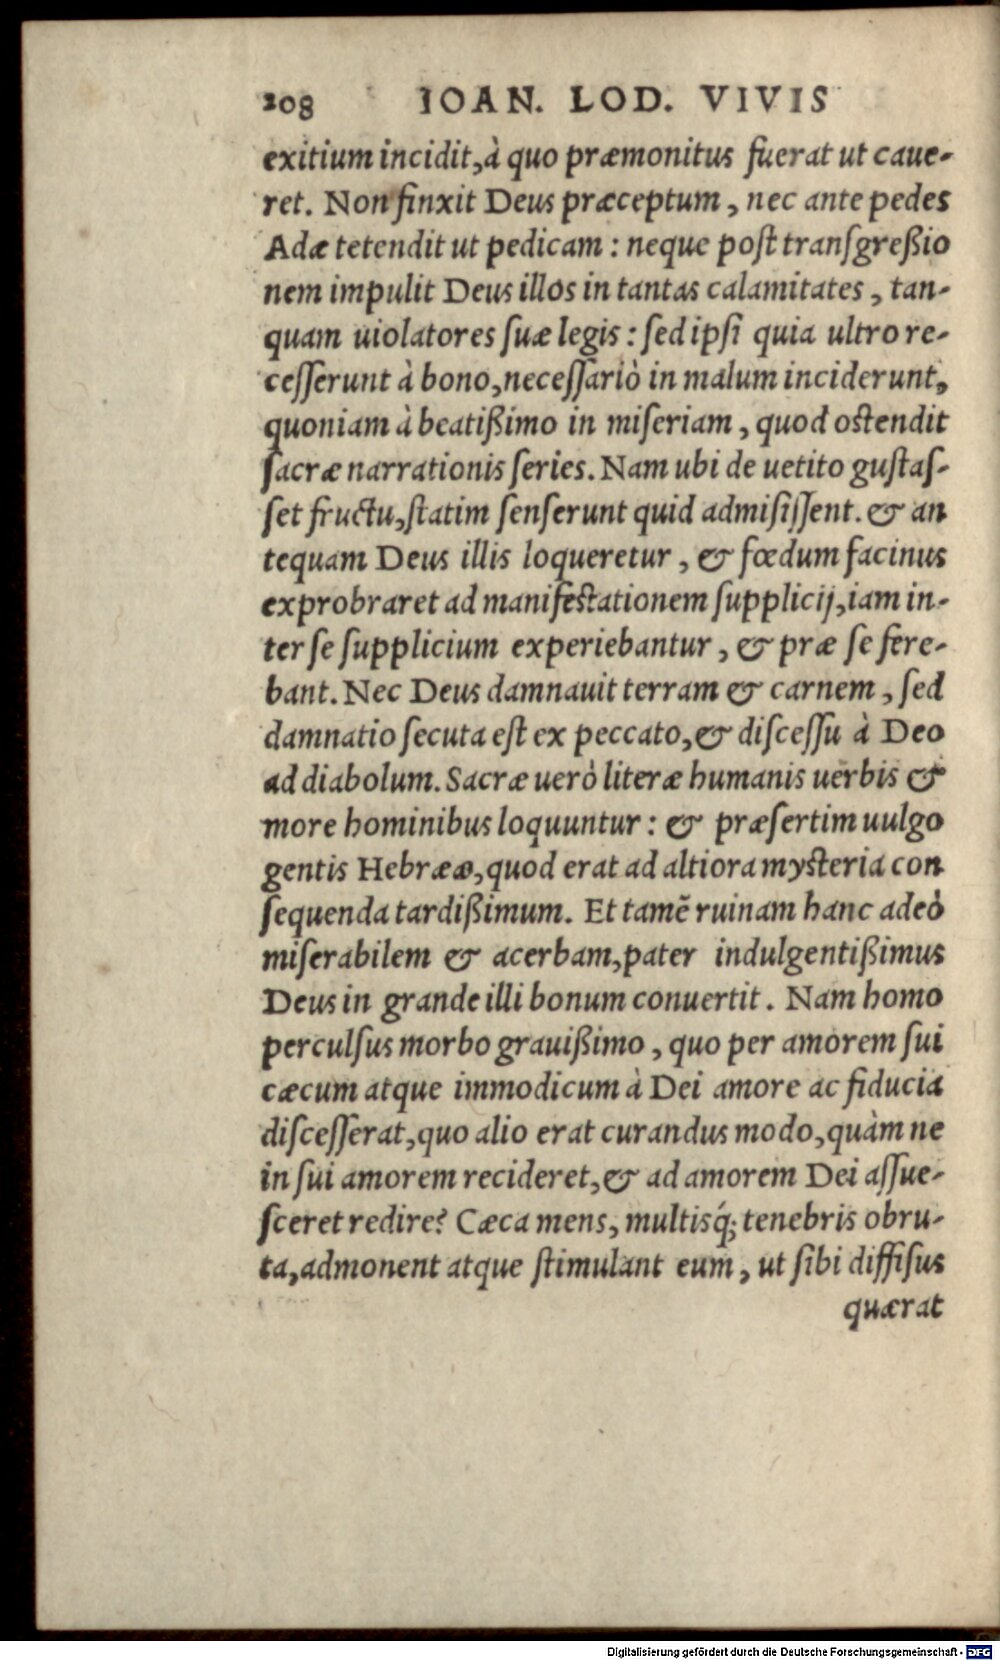 208 IOAN. LOD. VIVIS
exitium incidit,à quo præmonitus fuerat ut caue-
ret. Non finxit Deus præceptum, nec ante pedes
Adæ tetendit ut pedicam: neque poſt tranſgreßio
nem impulit Deus illos in tantas calamitates, tan-
quam uiolatores ſuæ legis: ſed ipſi quia ultro re-
ceſſerunt à bono,neceſſariò in malum inciderunt,
quoniam à beatißimo in miſeriam, quod oſtendit
ſacræ narrationis ſeries. Nam ubi de uetito guſtaſ-
ſet fructu,ſtatim ſenſerunt quid admiſiſſent. & an
tequam Deus illis loqueretur, & fœdum facinus
exprobraret ad manifeſtationem ſupplicij,iam in-
ter ſe ſupplicium experiebantur, & præ ſe fere-
bant. Nec Deus damnauit terram & carnem, ſed
damnatio ſecuta eſt ex peccato,& diſceſſu à Deo
ad diabolum. Sacræ uerò literæ humanis uerbis &
more hominibus loquuntur: & præſertim uulgo
gentis Hebrææ,quod erat ad altiora myſteria con
ſequenda tardißimum. Et tamē ruinam hanc adeò
miſerabilem & acerbam,pater indulgentißimus
Deus in grande illi bonum conuertit. Nam homo
perculſus morbo grauißimo, quo per amorem ſui
cæcum atque immodicum à Dei amore ac fiducia
diſceſſerat,quo alio erat curandus modo,quàm ne
in ſui amorem recideret,& ad amorem Dei aſſue-
ſceret redire? Cæca mens, multisq́; tenebris obru-
ta,admonent atque ſtimulant eum, ut ſibi diffiſus
quærat
Digitalisierung gefördert durch die Deutsche Forschungsgemeinschaft - DFG